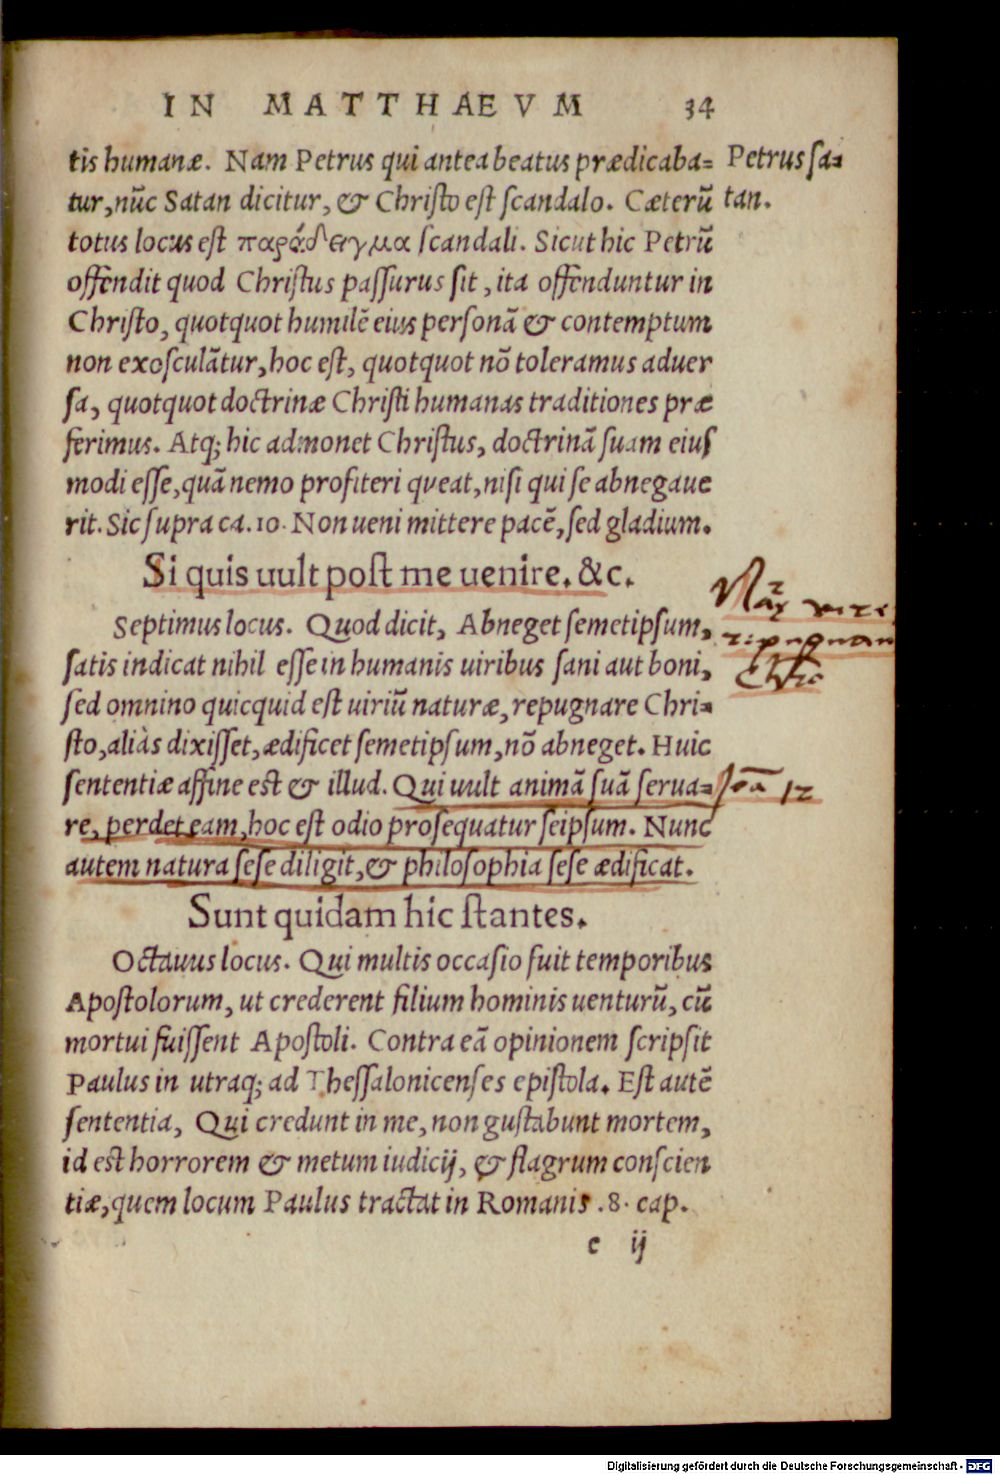 IN MATTHAEVM 34
tis humanæ. Nam Petrus qui antea beatus prædicaba= Petrus sa=
tur, nũc Satan dicitur, & Christo est scandalo. Cæterũ tan.
totus locus est παράδειγμα scandali. Sicut hic Petrũ
offendit quod Christus passurus sit, ita offenduntur in
Christo, quotquot humilẽ eius personã & contemptum
non exosculãtur, hoc est, quotquot nõ toleramus aduer
sa, quotquot doctrinæ Christi humanas traditiones præ
ferimus. Atq; hic admonet Christus, doctrinã suam eius
modi esse, quã nemo profiteri queat, nisi qui se abnegaue
rit. Sic supra ca. 10. Non ueni mittere pacẽ, sed gladium.
Si quis uult post me uenire. &c.
Septimus locus. Quod dicit, Abneget semetipsum,
satis indicat nihil esse in humanis uiribus sani aut boni,
sed omnino quicquid est uiriũ naturæ, repugnare Chri=
sto, aliàs dixisset, ædificet semetipsum, nõ abneget. Huic
sententiæ affine est & illud. Qui uult animã suã serua= Joã 12
re, perdet eam, hoc est odio prosequatur seipsum. Nunc
autem natura sese diligit, & philosophia sese ædificat.
Sunt quidam hic stantes.
Octauus locus. Qui multis occasio fuit temporibus
Apostolorum, ut crederent filium hominis uenturũ, cũ
mortui fuissent Apostoli. Contra eã opinionem scripsit
Paulus in utraq; ad Thessalonicenses epistola. Est autẽ
sententia, Qui credunt in me, non gustabunt mortem,
id est horrorem & metum iudicij, & flagrum conscien
tiæ, quem locum Paulus tractat in Romanis .8. cap.
c ij
Digitalisierung gefördert durch die Deutsche Forschungsgemeinschaft - DFG